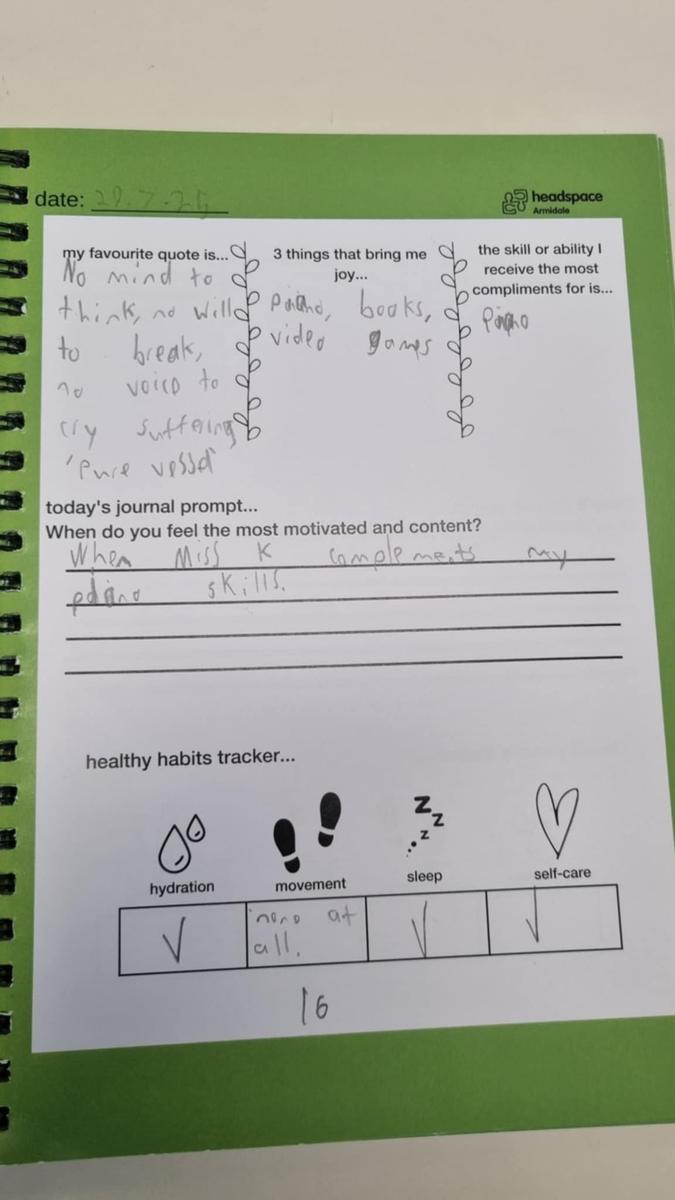 date: 29.7.25
headspace
Armidale
my favourite quote is...
No mind to
think, no will
to break,
no voice to
cry suffering
'Pure vessel'
3 things that bring me
joy...
Paiano, books,
video games
the skill or ability I
receive the most
compliments for is...
Paiano
today's journal prompt...
When do you feel the most motivated and content?
When Miss K complements my
pdaino skills.
healthy habits tracker...
hydration
movement
sleep
self-care
none at
all.
16